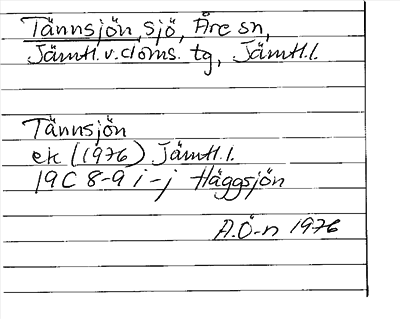 Tännsjön, sjö, Åre sn,
Jämtl. v. doms. tg, Jämtl. l.
Tännsjön
ek (1976) Jämtl. l.
19C 8-9 i-j Häggsjön
A.Ö-n 1976